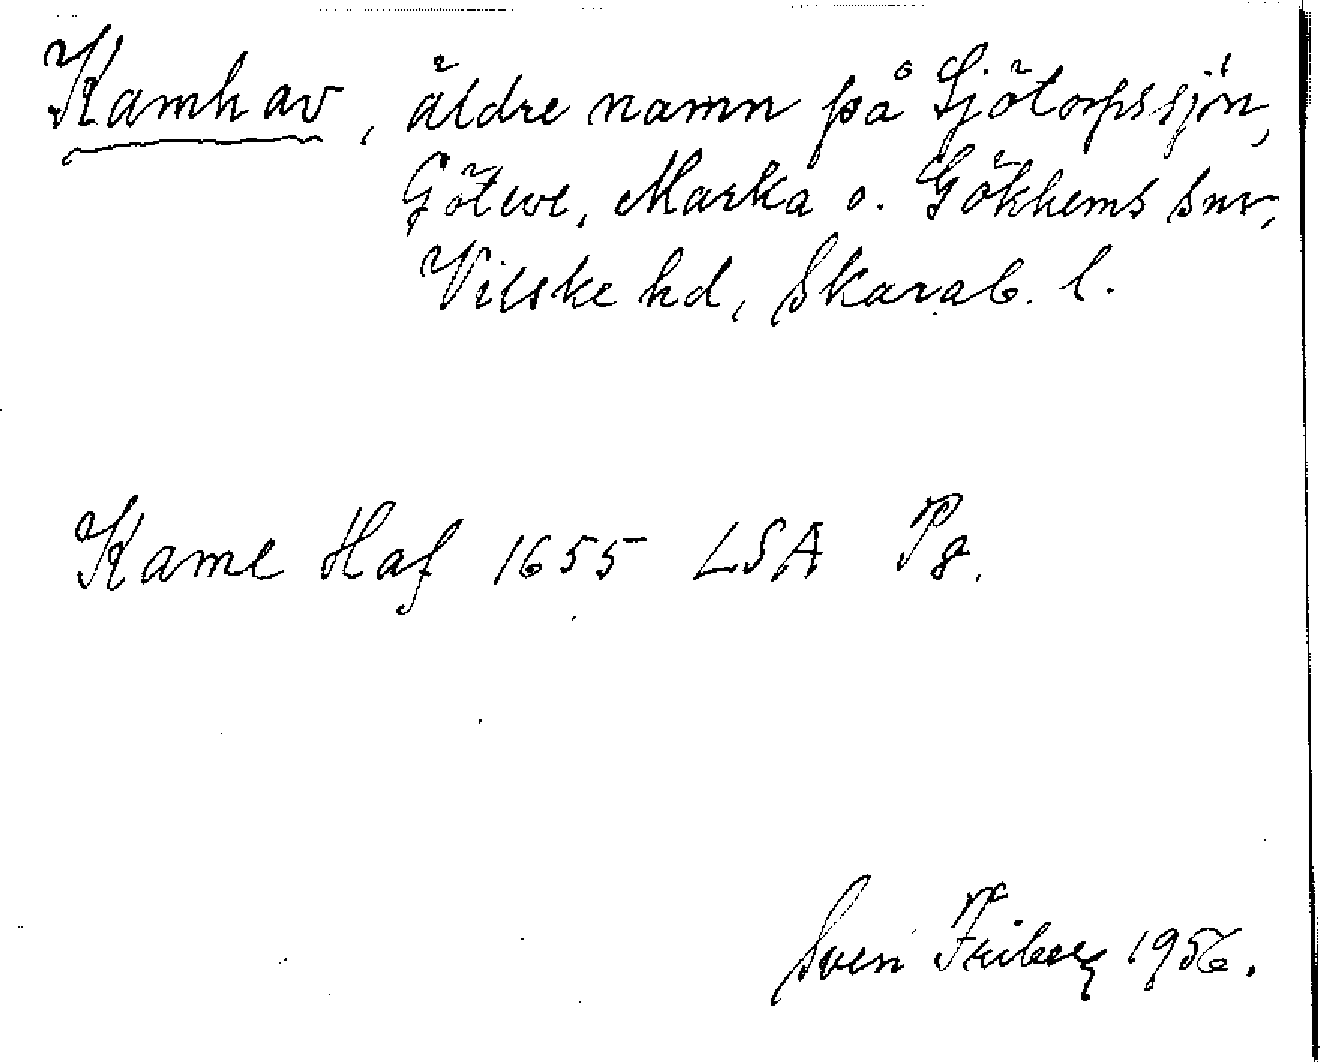 Kamhav, äldre namn på Sjötorpssjön,
Göteve, Marka o. Gökhems snr,
Vilske hd, Skarab. l.
Kame Haf 1655 LSA Pg.
Sven Friberg 1956.